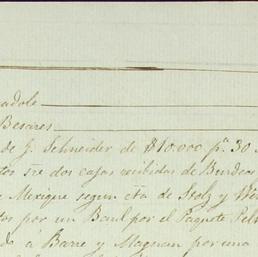 adole
Besares
de J. Schneider de $10.000 pr. 30
tos sre dos cajas recibidas de Burdeos
Mexique segun cta de Stolz y
tos por un Baul por el Paquete
do á Barre y Magnan por una